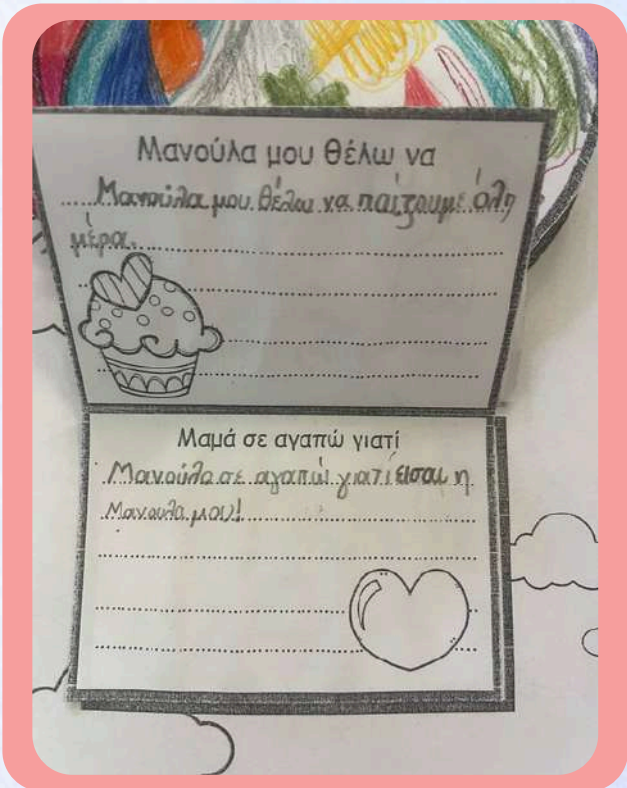 Μανούλα μου θέλω να
Μανούλα μου θέλω να παίζουμε όλη
μέρα.
Μαμά σε αγαπώ γιατί
Μανούλα σε αγαπώ γιατί είσαι η
Μανούλα μου!